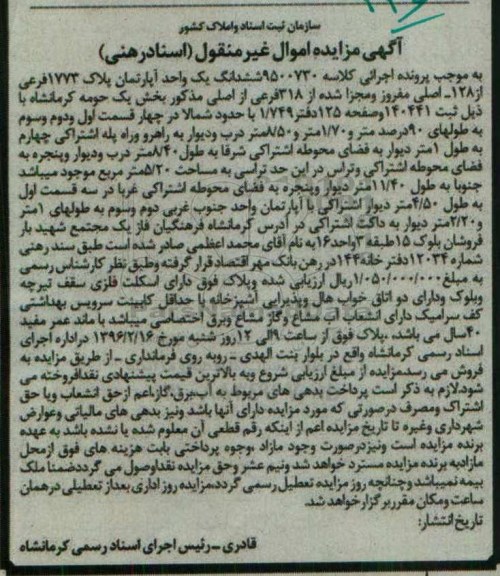 سازمان ثبت اسناد واملاک کشور
آگهی مزایده اموال غیر منقول (اسناد رهنی)
به موجب پرونده اجرائی کلاسه ۹۵۰۰۷۳۰ ششدانگ یک واحد آپارتمان پلاک ۱۷۷۳فرعی
از۱۲۸_ اصلی مفروز ومجزا شده از ۳۱۸فرعی از اصلی مذکور بخش یک حومه کرمانشاه با
ذیل ثبت ۱۴۰۴۴۱وصفحه ۱۲۵دفتر۱/۷۴۹ با حدود شمالا در چهار قسمت اول ودوم وسوم
به طولهای ۹۰درصد متر و۱/۷۰متر و۸/۵۰متر درب ودیوار به راهرو وراه پله اشتراکی چهارم
به طول ۱متر دیوار به فضای محوطه اشتراکی شرقا به طول۸/۴۰متر درب ودیوار وپنجره به
فضای محوطه اشتراکی وتراس در این حد تراسی به مساحت ۵/۲۰متر مربع موجود میباشد
جنوبا به طول ۱۱/۴۰متر دیوار وپنجره به فضای محوطه اشتراکی غربا در سه قسمت اول
به طول ۴/۵۰متر دیوار اشتراکی با آپارتمان واحد جنوب غربی دوم وسوم به طولهای ۱متر
و۲/۲۰متر دیوار به داکت اشتراکی در آدرس کرمانشاه فرهنگیان فاز یک مجتمع شهید بار
فروشان بلوک ۱۵طبقه ۳واحد۱۶به نام آقای محمد اعظمی صادر شده است طبق سند رهنی
شماره ۱۲۰۳۴دفتر خانه۱۴۴در رهن بانک مهر اقتصاد قرار گرفته وطبق نظر کارشناس رسمی
به مبلغ۱/۰۵۰/۰۰۰/۰۰۰ریال ارزیابی شده وپلاک فوق دارای اسکلت فلزی سقف تیرچه
وبلوک ودارای دو اتاق خواب هال وپذیرایی آشپزخانه با حداقل کابینت سرویس بهداشتی
کف سرامیک دارای انشعاب آب مشاع وگاز مشاع وبرق اختصاصی میباشد با ماند عمر مفید
۴۰سال می باشد ،پلاک فوق از ساعت ۹الی ۱۲روز شنبه مورخ ۱۳۹۶/۲/۱۶ در اداره اجرای
اسناد رسمی کرمانشاه واقع در بلوار بنت الهدی _ روبه روی فرمانداری _ از طریق مزایده به
فروش می رسد.مزایده از مبلغ ارزیابی شروع وبه بالاترین قیمت پیشنهادی نقدا فروخته می
شود.لازم به ذکر است پرداخت بدهی های مربوط به آب،برق،گاز،اعم از حق انشعاب ویا حق
اشتراک ومصرف درصورتی که مورد مزایده دارای آنها باشد ونیز بدهی های مالیاتی وعوارض
شهرداری وغیره تا تاریخ مزایده اعم از اینکه رقم قطعی آن معلوم شده یا نشده باشد به عهده
برنده مزایده است ونیز درصورت وجود مازاد ،وجوه پرداختی بابت هزینه های فوق ازمحل
مازادبه برنده مزایده مسترد خواهد شد ونیم عشر وحق مزایده نقدا وصول می گردد.ضمنا ملک
بیمه نمیباشد وچنانچه روز مزایده تعطیل رسمی گردد،مزایده روز اداری بعد از تعطیلی در همان
ساعت ومکان مقرر برگزار خواهد شد.
تاریخ انتشار:
قادری _ رئیس اجرای اسناد رسمی کرمانشاه